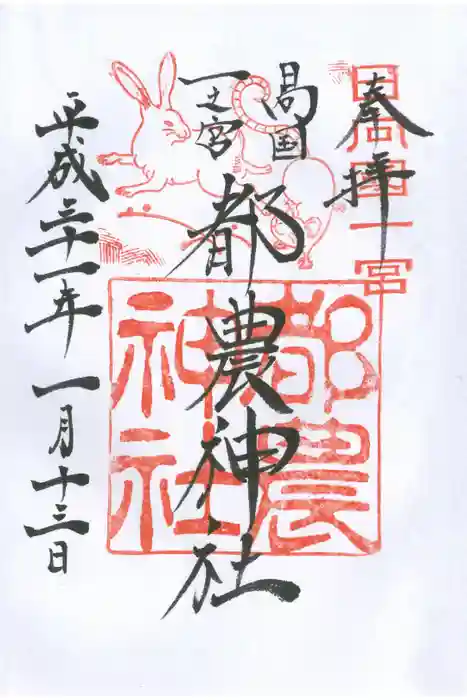 奉拝
日向国一宮
日向国
一之宮
都農神社
都農
神社
平成三十一年一月十三日